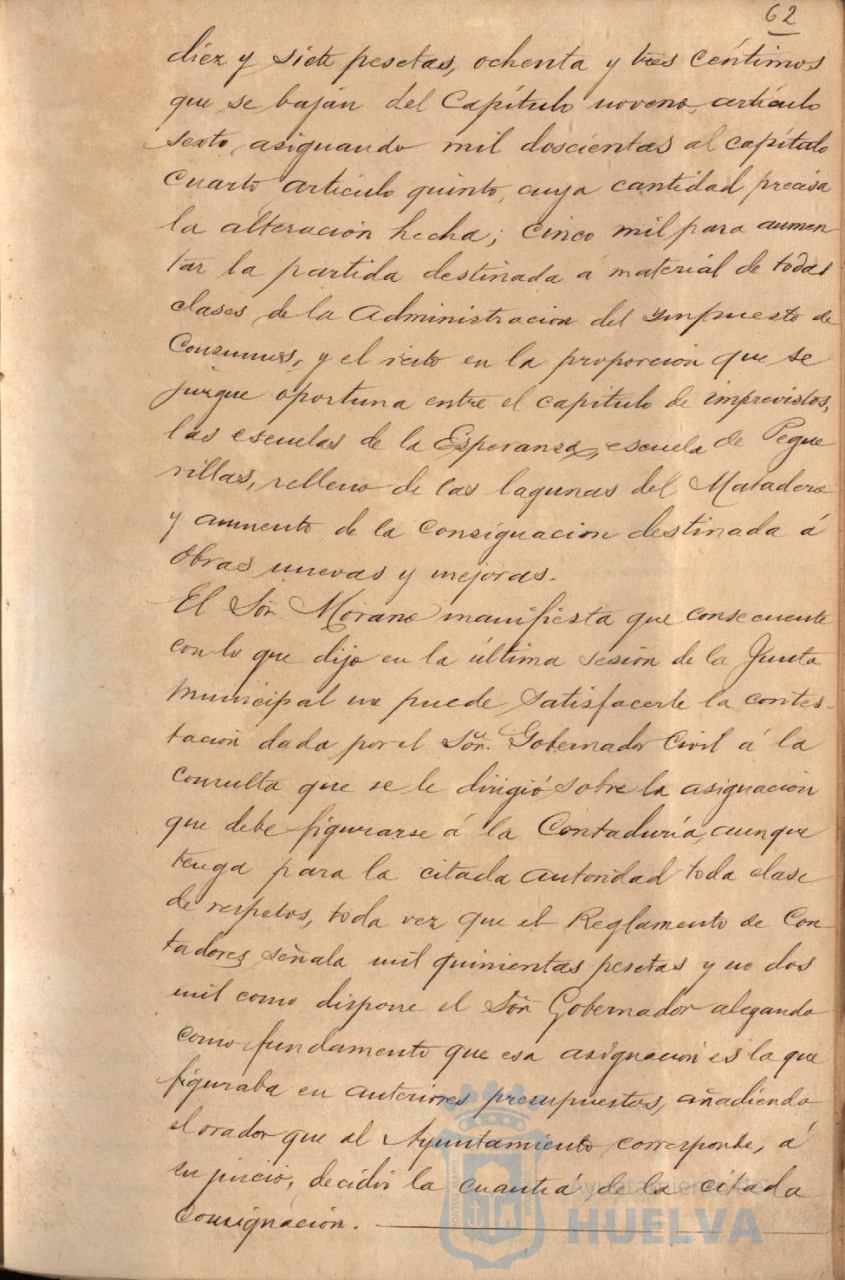 62
diez y siete pesetas, ochenta y tres céntimos
que se baján del Capítulo noveno, artículo
sexto, asignando mil doscientas al capítulo
cuarto, artículo quinto, cuya cantidad precisa
la alteración hecha; cinco mil para aumen
tar la partida destinada á material de todas
clases de la Administracion del Impuesto de
Consumos, y el resto en la proporcion que se
juzgue oportuna entre el capitulo de imprevistos,
las escuelas de la Esperanza, escuela de Pegue
rillas, relleno de las lagunas del Matadero
y aumento de la consignacion destinada á
obras nuevas y mejoras.
El Sór. Morano manifiesta que consecuente
con lo que dijo en la última sesión de la Junta
Municipal no puede satisfacerle la contes-
tación dada por el Sór. Gobernador Civil á la
consulta que se le dirigió sobre la asignacion
que debe figurarse á la Contaduría, aunque
tenga para la citada autoridad toda clase
de respetos, toda vez que el Reglamento de Con
tadores señala mil quinientas pesetas y no dos
mil como dispone el Sór. Gobernador alegando
como fundamento que esa asignación es la que
figuraba en anteriores presupuestos, añadiendo
el orador que al Ayuntamiento corresponde, á
su juicio, decidir la cuantía de la citada
consignación.
Ayuntamiento de
HUELVA